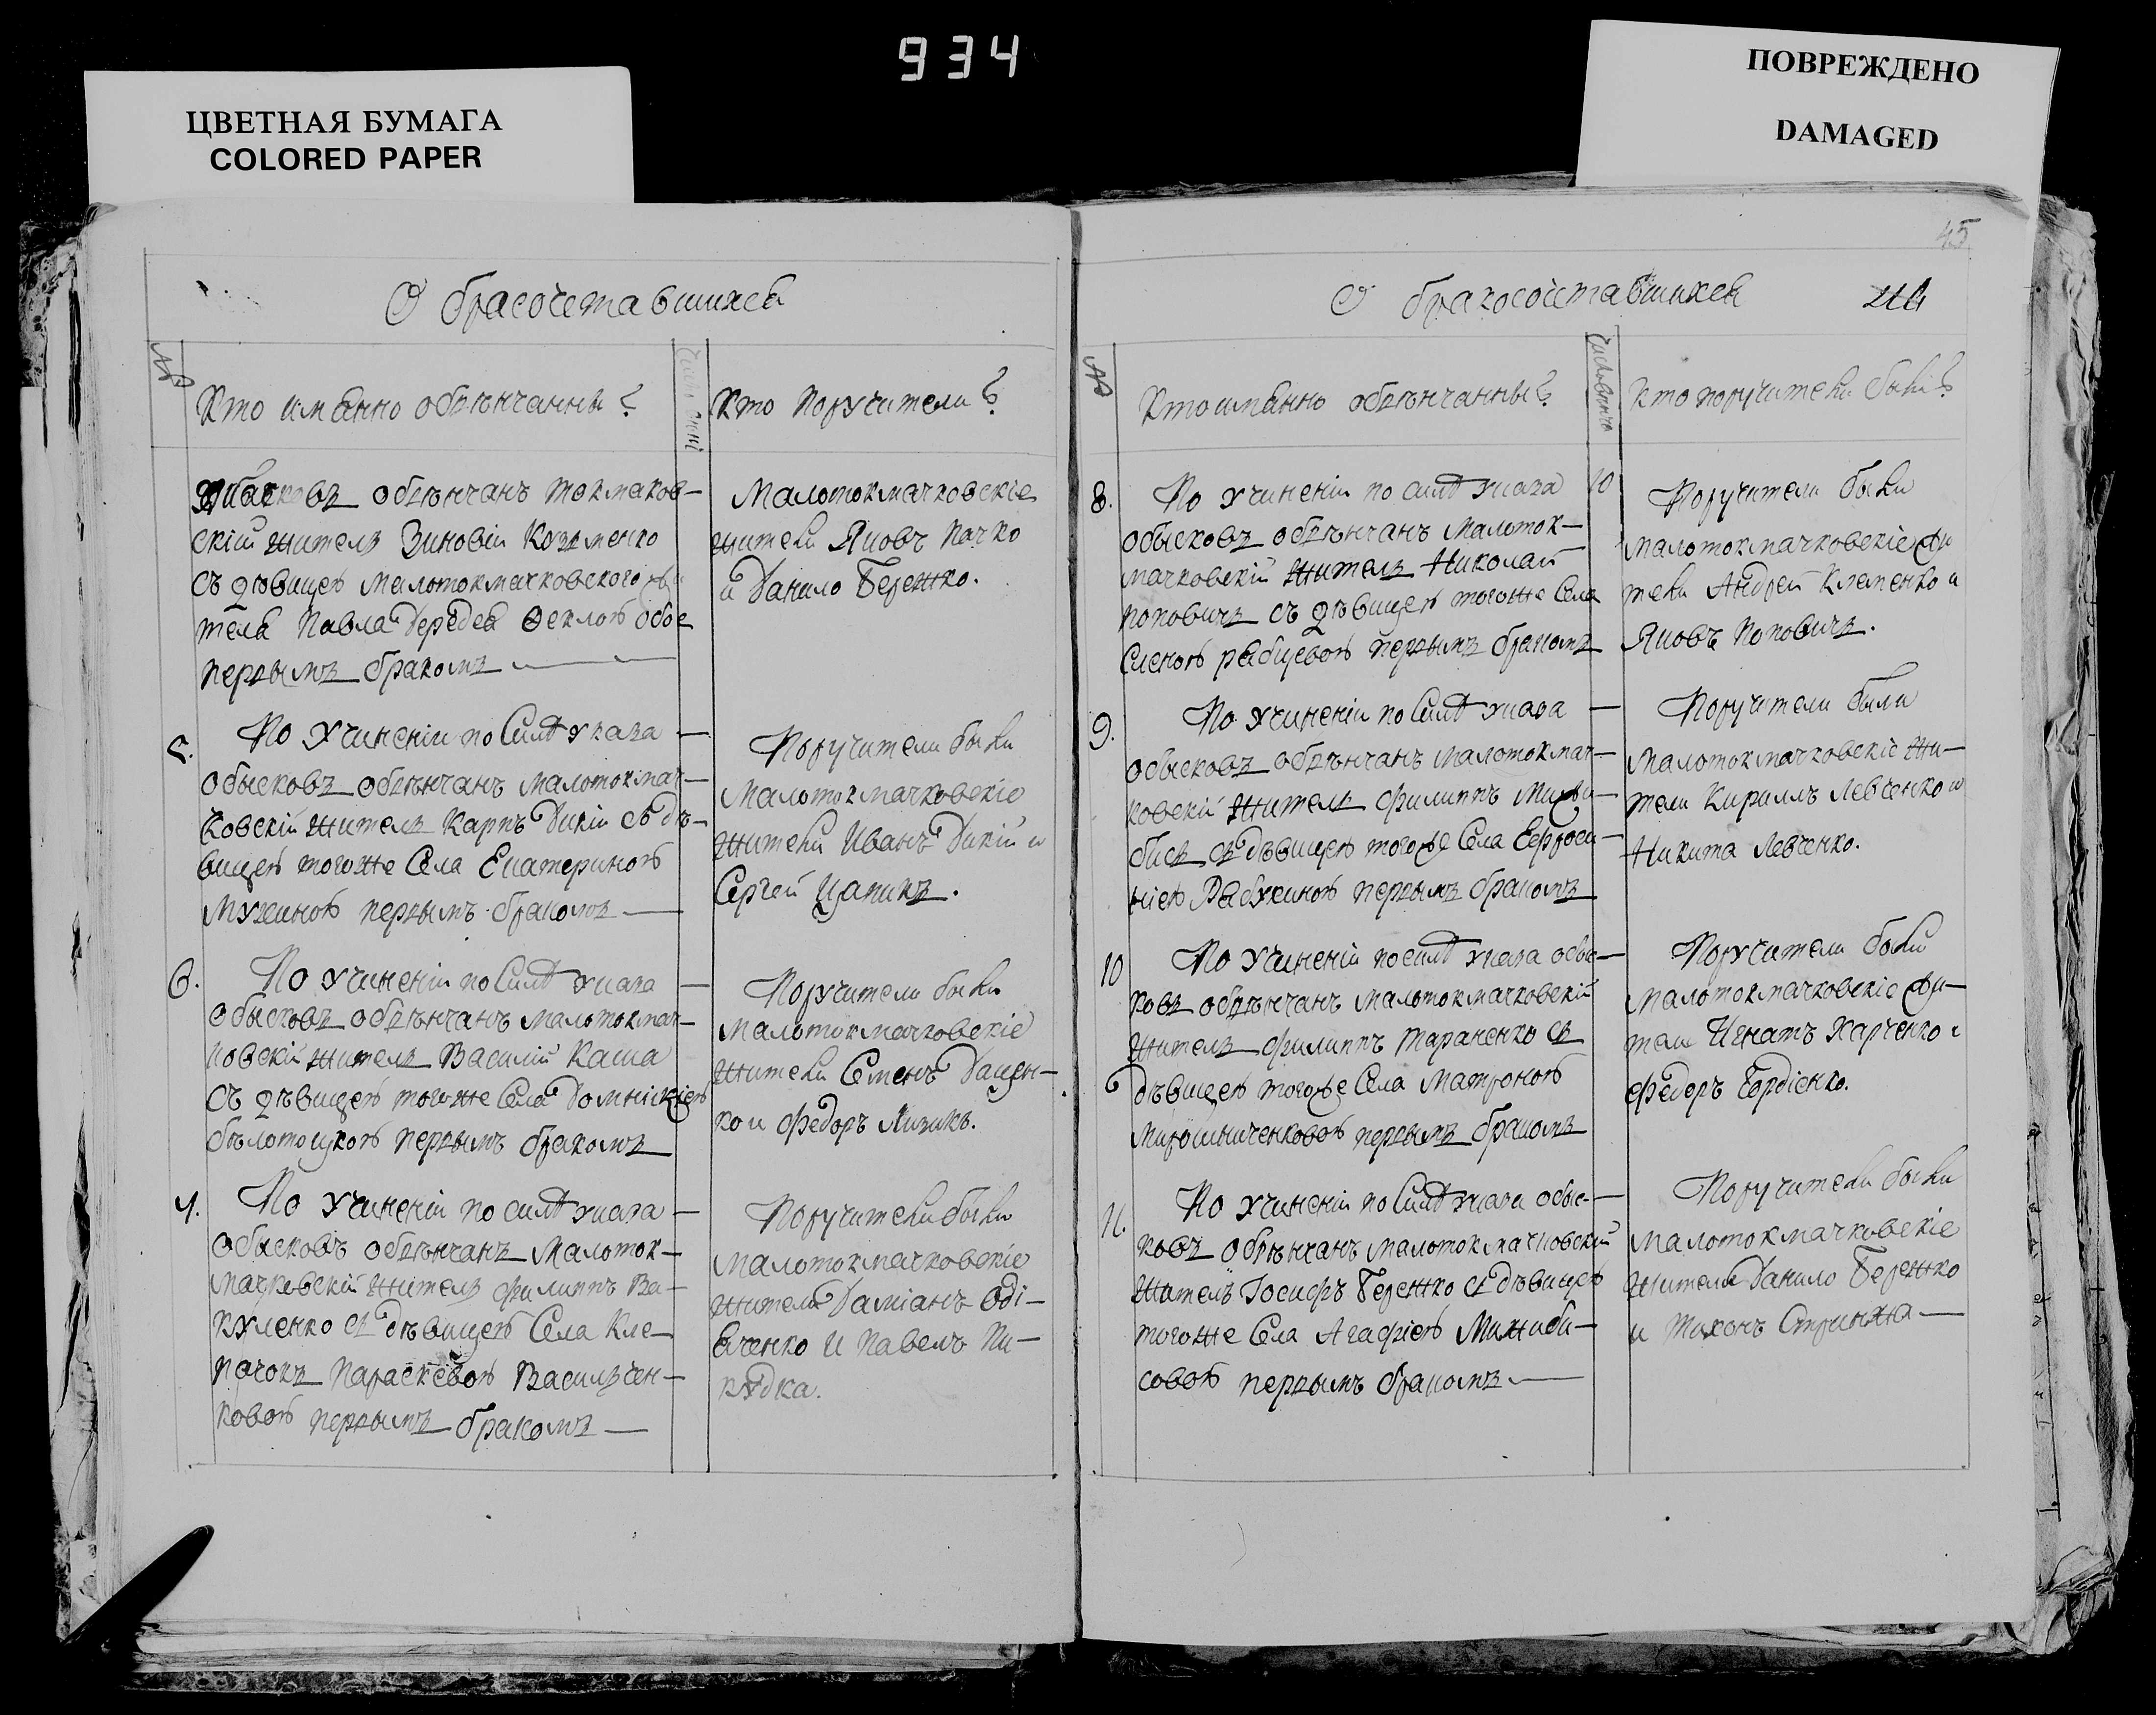 934
ЦВЕТНАЯ БУМАГА
COLORED PAPER
ПОВРЕЖДЕНО
DAMAGED
О брасочетавшихся
№
Кто иманно обвѣнчанны?
Кто Поручители?
обвѣнчанъ токмаков-
скій житель Зиновій Козменко
съ дѣвицею малотокмачковского жи
теля Павла Дередея Феклою обое
первымъ бракомъ —
Малотокмачковскіе
жители Яковъ Пачко
и Данило Бережко.
5.
По Учиненіи по Силѣ указа —
обысковъ обвѣнчанъ малотокмач-
ковскій житель Карпъ Дикій съ дѣ-
вицею тогоже Села Екатериною
Мухиною первымъ бракомъ —
Поручители были
Малотокмачковскіе
жители Иванъ Дикій и
Сергей Цапикъ.
6.
По Учиненіи по Силѣ указа —
Обысковъ обвѣнчанъ малотокмач-
ковскій житель Василій Каша
съ дѣвицею тогоже Села Домникіею
бѣлотоцкою первымъ бракомъ
Поручители были
малотокмачковскіе
жители Семенъ Дацен-
ко и Федоръ Лизикъ.
7.
По Учиненіи по силѣ указа —
Обысковъ обвѣнчанъ Малоток-
мачковскій житель Филиппъ Ва-
куленко съ дѣвицею Села Кле-
пачокъ Параскевою Васильчен-
ковою первымъ бракомъ —
Поручители были
малотокмачковскіе
жители Даміанъ Оді-
енченко и Павелъ Пи-
кудка.
45
О бракосочетавшихся
№
Кто иманно обвѣнчанны?
Кто поручители были?
8.
По Учиненіи по силѣ указа
обысковъ обвѣнчанъ Малоток-
мачковскій житель Николай
Поповичъ съ дѣвицею тогоже Села
Еленою рябцевою первымъ бракомъ
10
Поручители были
малотокмачковскіе жи
тели Андрей Клеменко и
Яковъ Поповичъ.
9.
По Учиненіи по Силѣ указа —
обысковъ обвѣнчанъ малотокмач-
ковскій житель Филиппъ
съ дѣвицею тогоже Села Ефроси-
ніею Рябухиною первымъ бракомъ
Поручители были
Малотокмачковскіе жи-
тели Кириллъ Левченко и
Никита Левченко.
10
По Учиненій по силѣ указа обыс-
ковъ обвѣнчанъ малотокмачковскій
житель Филиппъ Тараненко съ
дѣвицею тогоже Села Матроною
Мирошниченковою первымъ бракомъ
Поручители были
Малотокмачковскіе жи-
тели Игнатъ Харченко и
Федоръ Гордіенко.
11.
По Учиненіи по Силѣ указа обыс-
ковъ обвѣнчанъ малотокмачковскій
житель Іосифъ Бережко съ дѣвицею
тогоже Села Агафіею Михиби-
совою первымъ бракомъ —
Поручители были
малотокмачковскіе
жители Данило Бережко
и Тихонъ Стринжа —